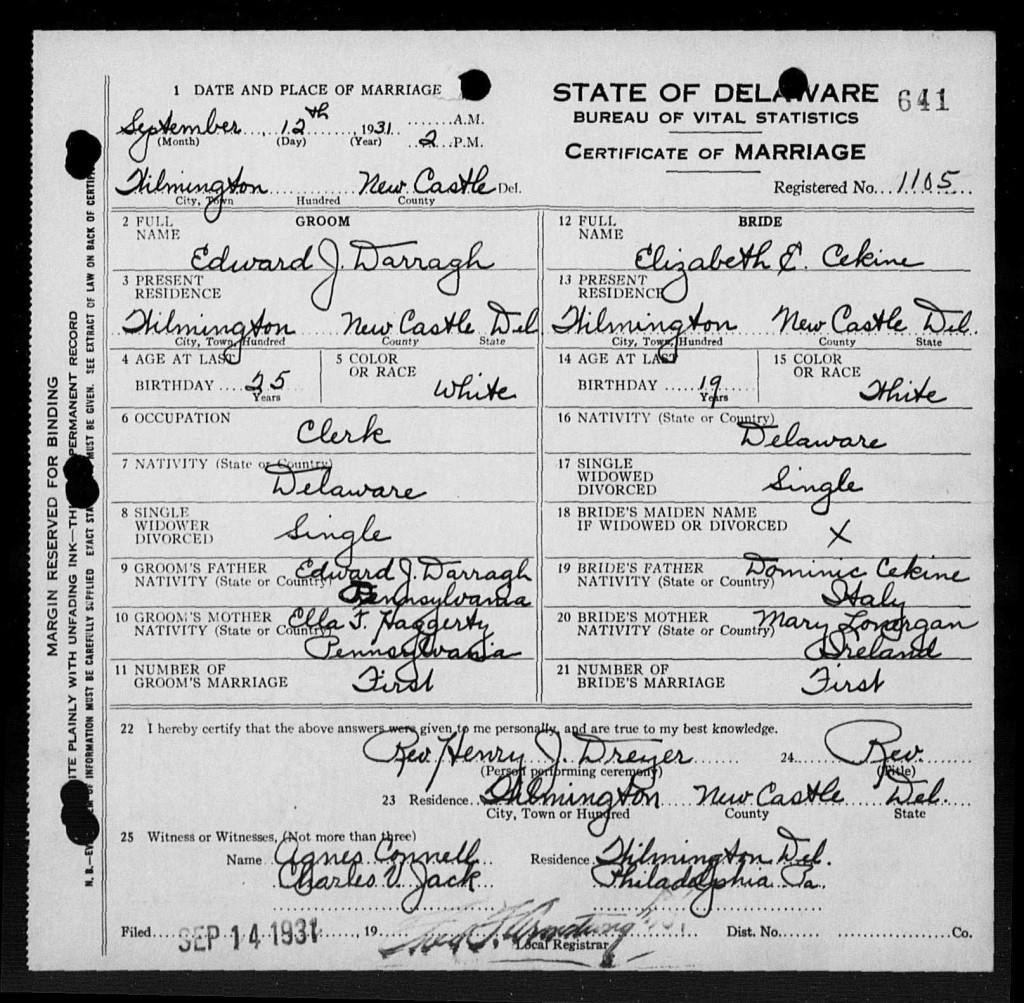 1 DATE AND PLACE OF MARRIAGE
September 12th 1931 A.M.
(Month) (Day) (Year) 2 P.M.
Wilmington New Castle Del.
City, Town Hundred County
STATE OF DELAWARE 641
BUREAU OF VITAL STATISTICS
CERTIFICATE OF MARRIAGE
Registered No. 1105
2 FULL NAME GROOM
Edward J. Darragh
3 PRESENT RESIDENCE
Wilmington New Castle Del
City, Town, Hundred County State
4 AGE AT LAST BIRTHDAY 25 Years
5 COLOR OR RACE White
6 OCCUPATION
Clerk
7 NATIVITY (State or Country)
Delaware
8 SINGLE
WIDOWER Single
DIVORCED
9 GROOM'S FATHER Edward J. Darragh
NATIVITY (State or Country) Pennsylvania
10 GROOM'S MOTHER Ella F. Haggerty
NATIVITY (State or Country) Pennsylvania
11 NUMBER OF
GROOM'S MARRIAGE First
12 FULL NAME BRIDE
Elizabeth E. Cekine
13 PRESENT RESIDENCE
Wilmington New Castle Del.
City, Town, Hundred County State
14 AGE AT LAST BIRTHDAY 19 Years
15 COLOR OR RACE White
16 NATIVITY (State or Country)
Delaware
17 SINGLE
WIDOWED Single
DIVORCED
18 BRIDE'S MAIDEN NAME
IF WIDOWED OR DIVORCED X
19 BRIDE'S FATHER Dominic Cekine
NATIVITY (State or Country) Italy
20 BRIDE'S MOTHER Mary Lonergan
NATIVITY (State or Country) Ireland
21 NUMBER OF
BRIDE'S MARRIAGE First
22 I hereby certify that the above answers were given to me personally, and are true to my best knowledge.
Rev Henry J. Dreyer 24 Rev.
(Person performing ceremony) (Title)
23 Residence Wilmington New Castle Del.
City, Town or Hundred County State
25 Witness or Witnesses, (Not more than three)
Name Agnes Connell Residence Wilmington Del.
Charles V. Jack Philadelphia Pa
Filed SEP 14 1931, 19 Armstrong Dist. No. Co.
Local Registrar
MARGIN RESERVED FOR BINDING
PLAINLY WITH UNFADING INK—PERMANENT RECORD
INFORMATION MUST BE CAREFULLY SUPPLIED EXACT MUST BE GIVEN. SEE EXTRACT OF LAW ON BACK OF
N. B.—